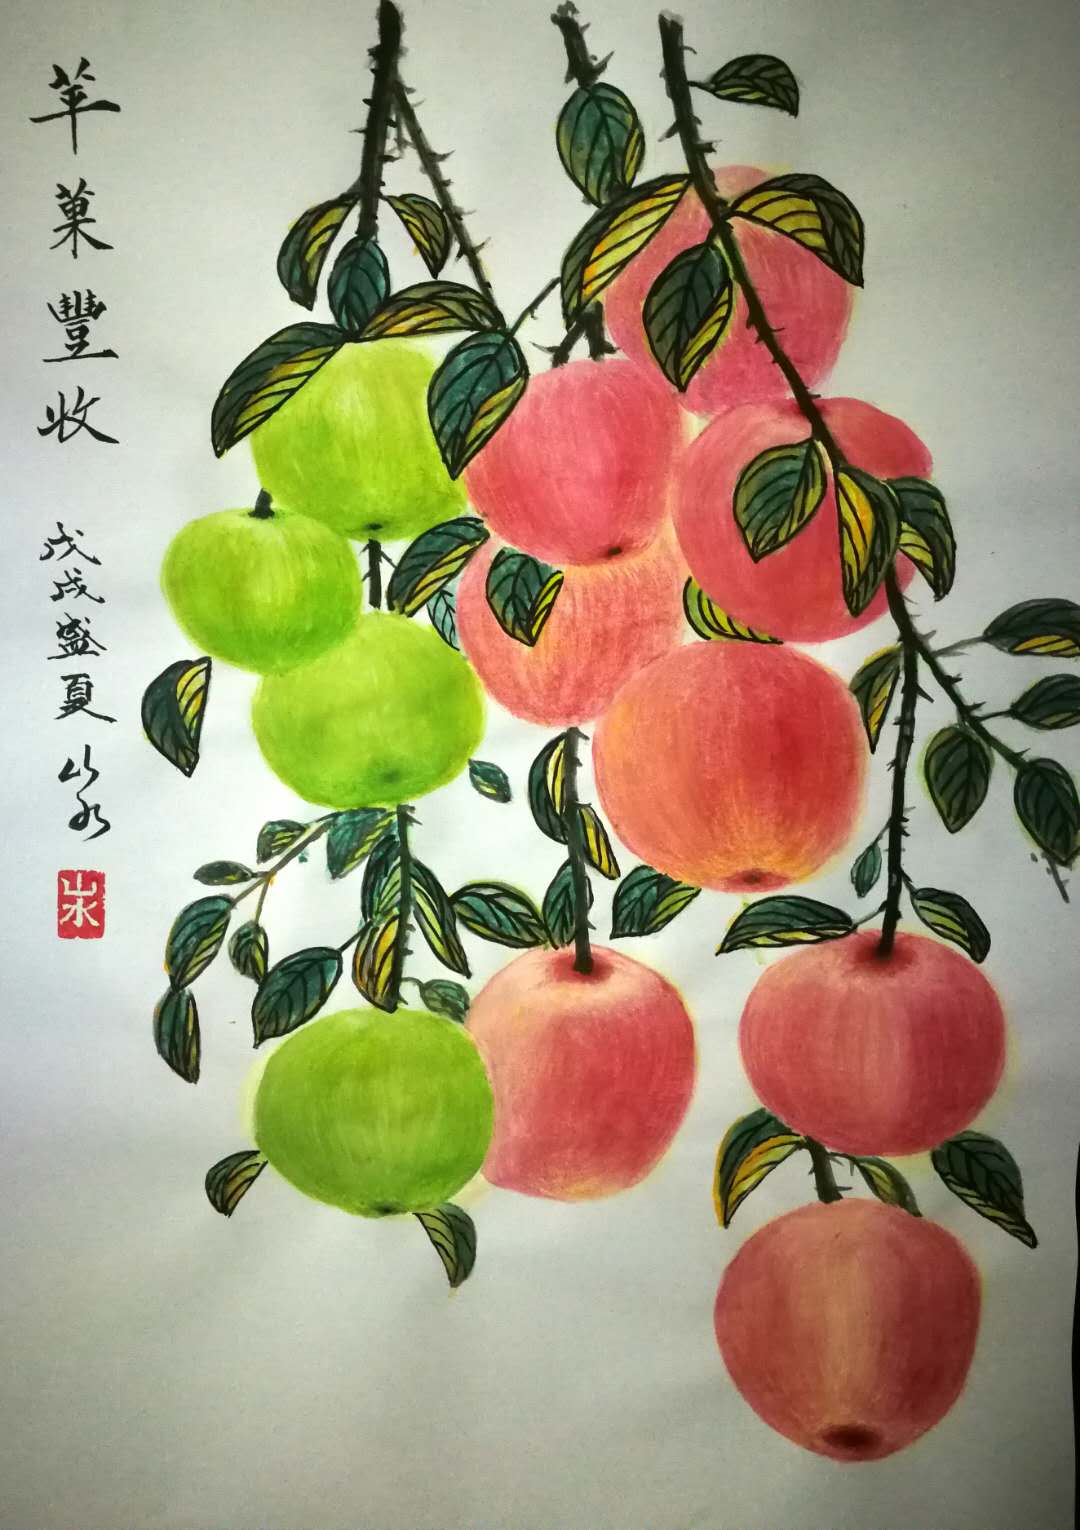 苹菓豐收
戊戌盛夏 山水
山水